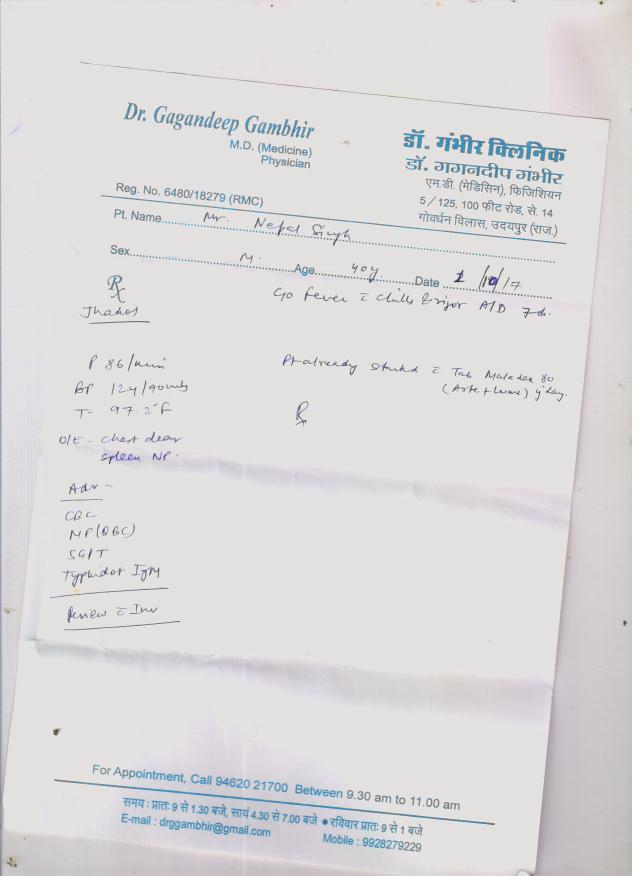 Dr. Gagandeep Gambhir
M.D. (Medicine)
Physician
डॉ. गंभीर क्लिनिक
डॉ. गगनदीप गंभीर
एम.डी. (मेडिसिन), फिजिशियन
5 / 125, 100 फीट रोड, से. 14
गोवर्धन विलास, उदयपुर (राज.)
Reg. No. 6480/18279 (RMC)
Pt. Name Mr. Nepal Singh
Sex M. Age 40y Date 1/10/17
Rx
C/o Fever c̄ chills & rigor A/D 7d.
Jhadol
P 86/min
BP 124/90
T- 97.2°F
Pt already started c̄ Tab 80
(Arte + Lume) y'day.
Rx
O/E - chest clear
spleen NP.
Adv -
CBC
MP (QBC)
SGPT
Typhidot IgM
Review c̄ Inv
For Appointment, Call 94620 21700 Between 9.30 am to 11.00 am
समय : प्रातः 9 से 1.30 बजे, सायं 4.30 से 7.00 बजे ● रविवार प्रातः 9 से 1 बजे
E-mail : drggambhir@gmail.com Mobile : 9928279229